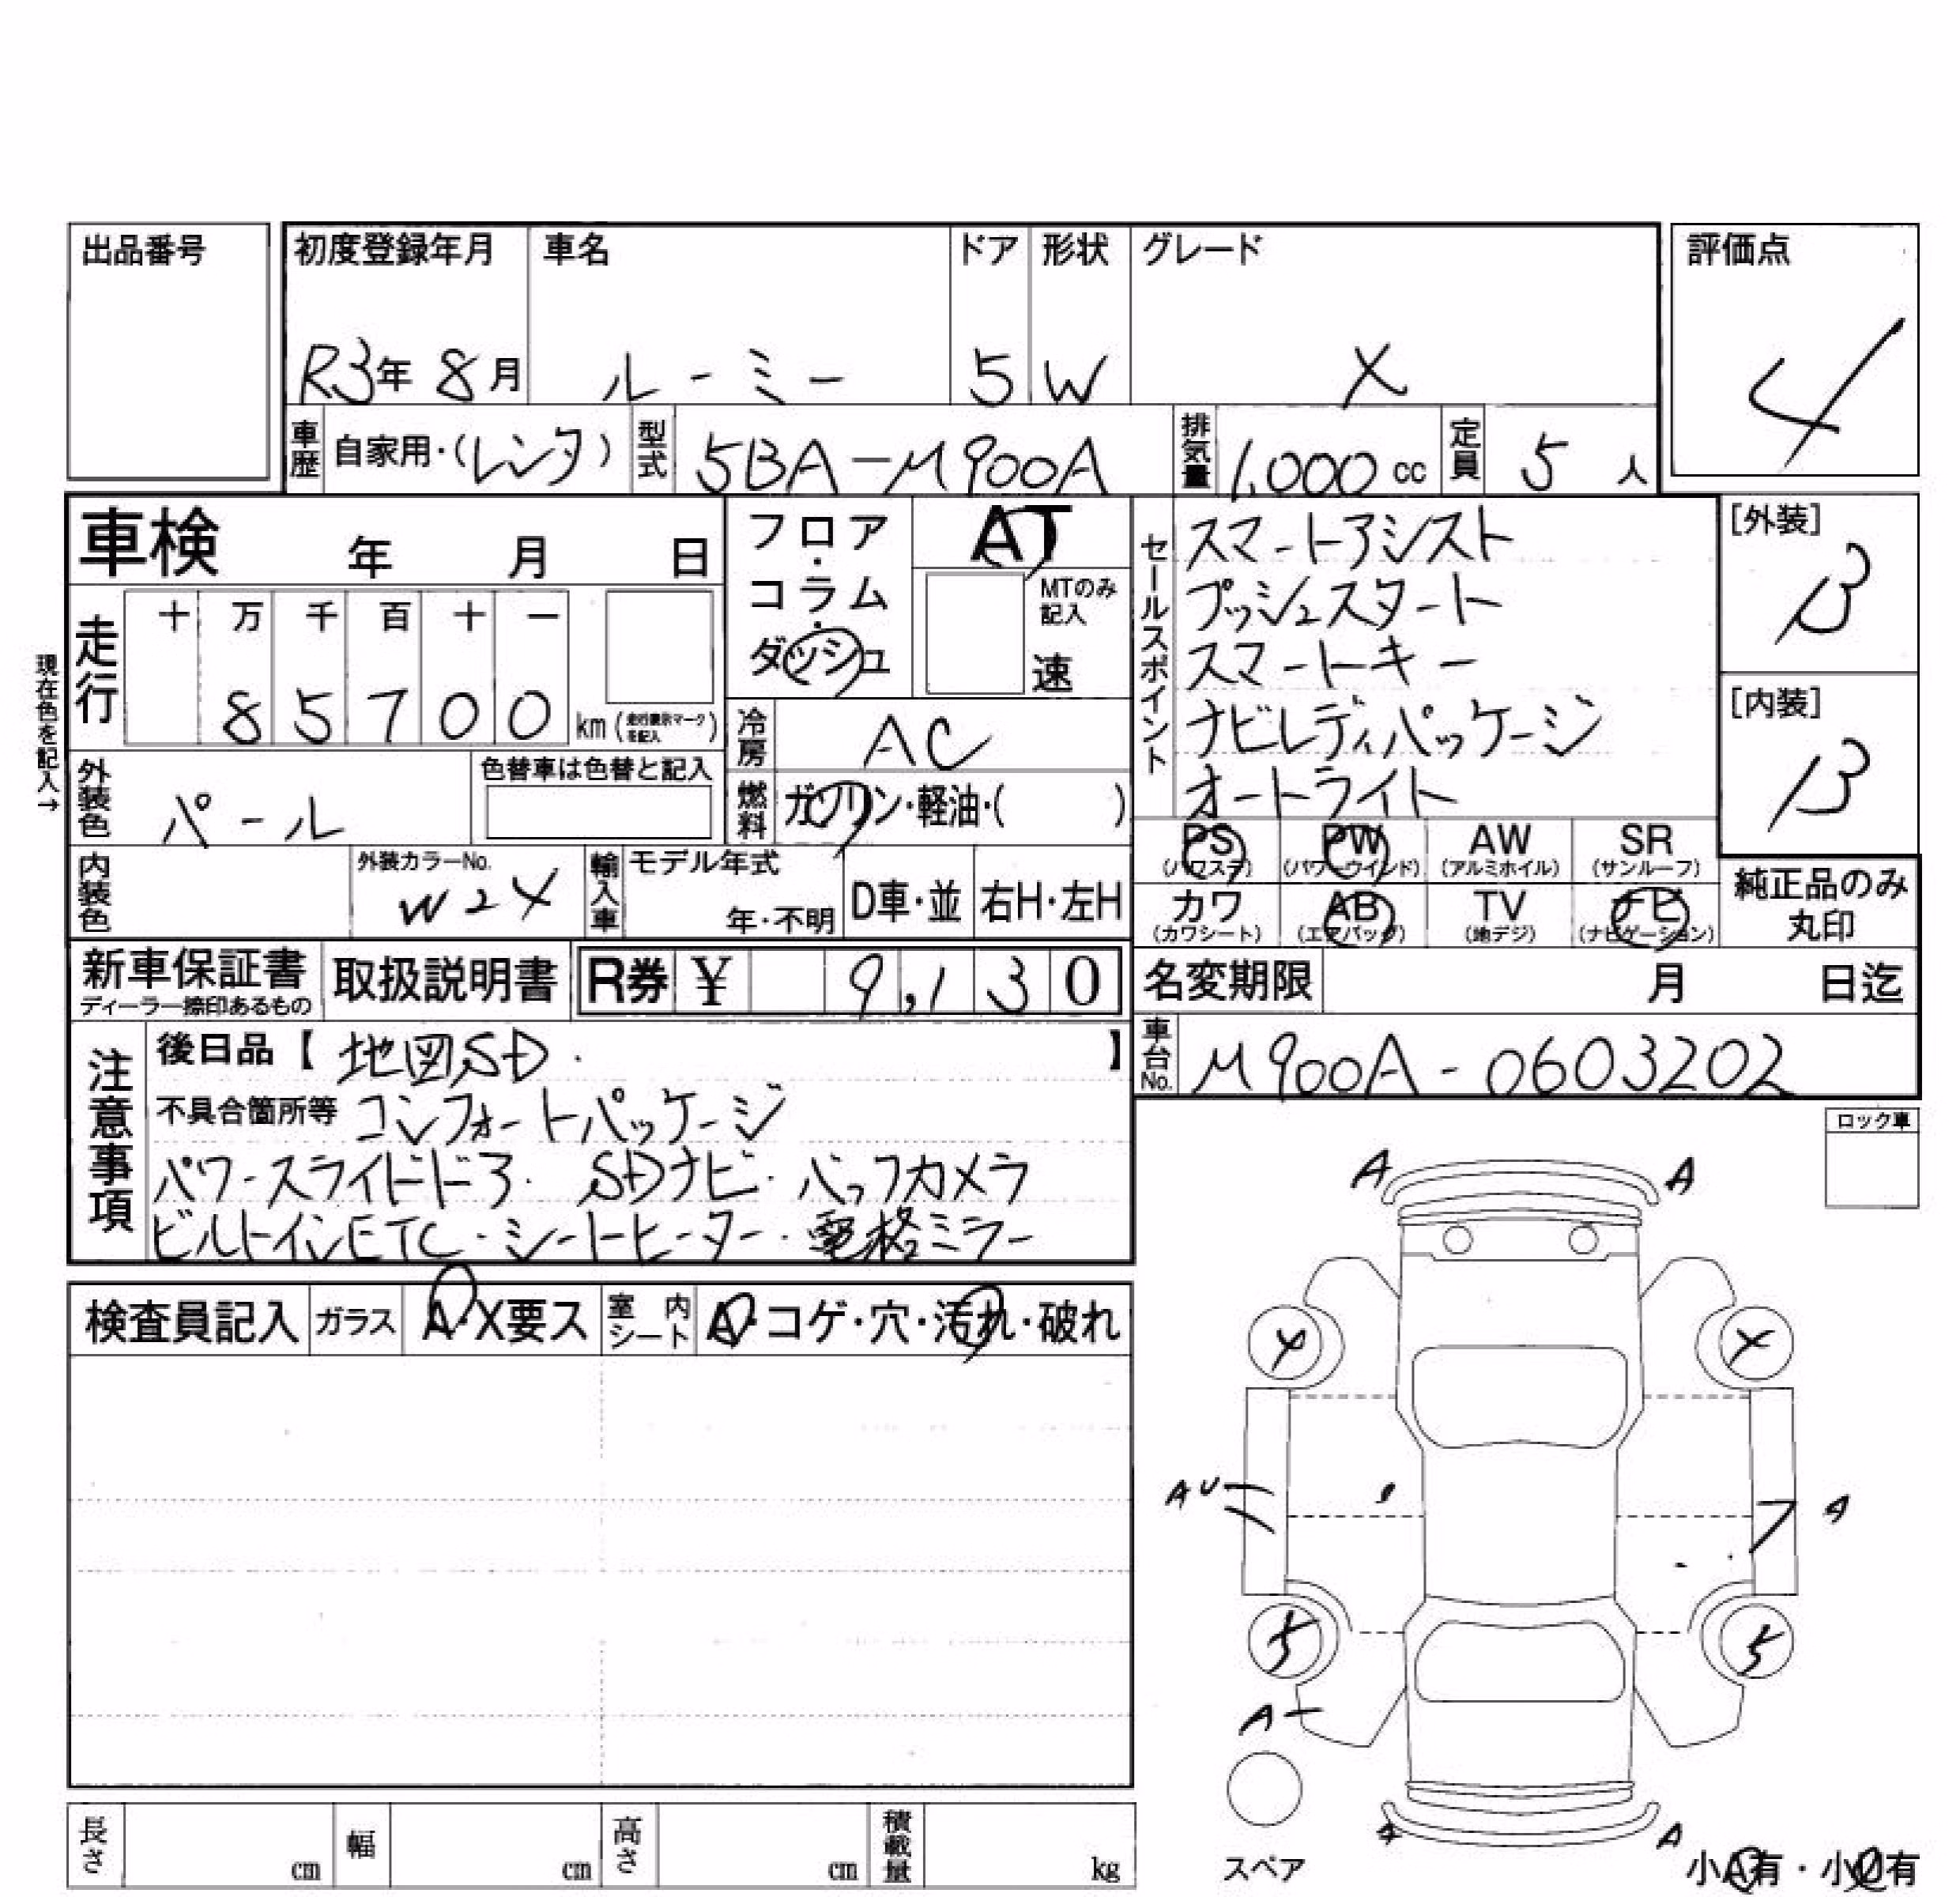 出品番号
初度登録年月 車名 ドア 形状 グレード 評価点
R3年 8月 ルーミー 5 W X 4
車歴 自家用・(レンタ) 型式 5BA-M900A 排気量 1,000cc 定員 5人
車検 年 月 日
フロア・コラム・ダッシュ AT
MTのみ記入 速
セールスポイント
スマートアシスト
プッシュスタート
スマートキー
ナビレディパッケージ
オートライト
[外装] B
[内装] B
現在色を記入→
走行 十 万 千 百 十 一
8 5 7 0 0 km (走行表示マークを記入)
冷房 AC
外装色 パール 色替車は色替と記入
燃料 ガソリン・軽油・( )
PS (パワステ) PW (パワーウインド) AW (アルミホイル) SR (サンルーフ)
カワ (カワシート) AB (エアバッグ) TV (地デジ) ナビ (ナビゲーション)
純正品のみ丸印
内装色 外装カラーNo. W24 輸入車 モデル年式 年・不明 D車・並 右H・左H
新車保証書 ディーラー捺印あるもの 取扱説明書 R券 ¥ 9,130
名変期限 月 日迄
車台No. M900A-0603202
注意事項
後日品【地図SD・ 】
不具合箇所等 コンフォートパッケージ
パワースライドドア・SDナビ・バックカメラ
ビルトインETC・シートヒーター・電格ミラー
ロック車
検査員記入 ガラス A・X要ス 室内シート A・コゲ・穴・汚れ・破れ
A A
4 4
AU A
5 5
A
スペア
A A
小A有・小U有
長さ cm 幅 cm 高さ cm 積載量 kg